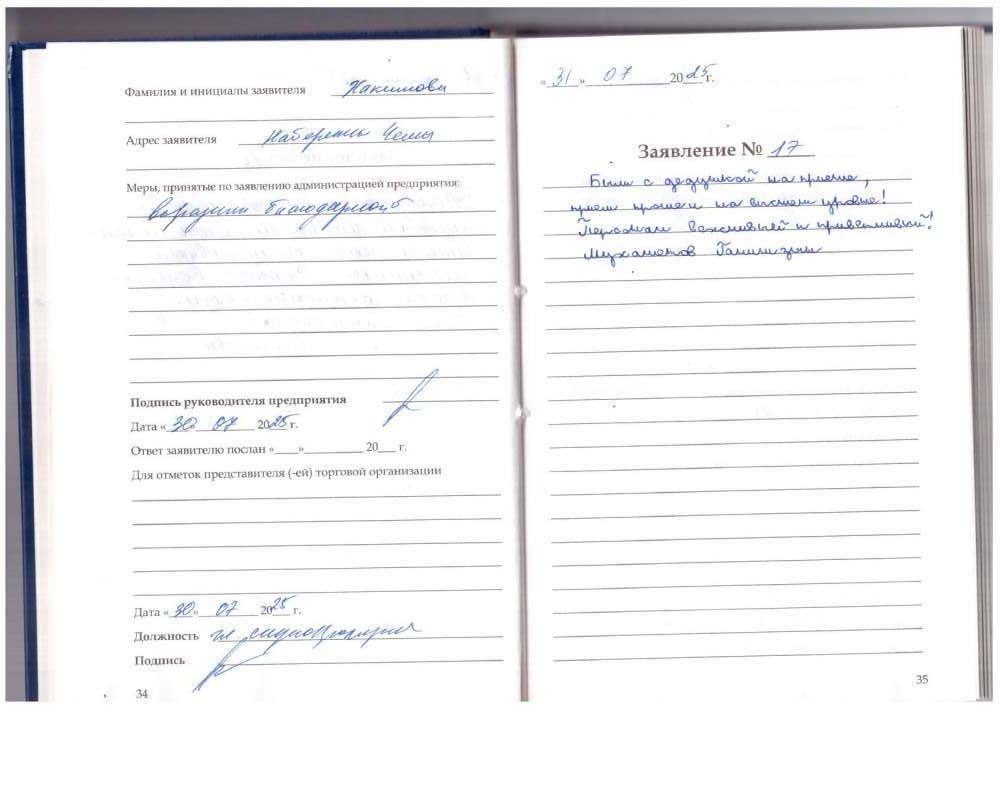 Фамилия и инициалы заявителя Хакимова
Адрес заявителя Набережн Челны
Меры, принятые по заявлению администрацией предприятия:
выразили благодарность
Подпись руководителя предприятия
Дата «30» 07 2025 г.
Ответ заявителю послан «___»__________ 20___ г.
Для отметок представителя (-ей) торговой организации
Дата «30» 07 2025 г.
Должность гл.
Подпись
34
«31» 07 2025г.
Заявление № 17
Были с дедушкой на приеме,
прием прошел на высшем уровне!
Персонал вежливый и приветливый!
Мухаметов
35